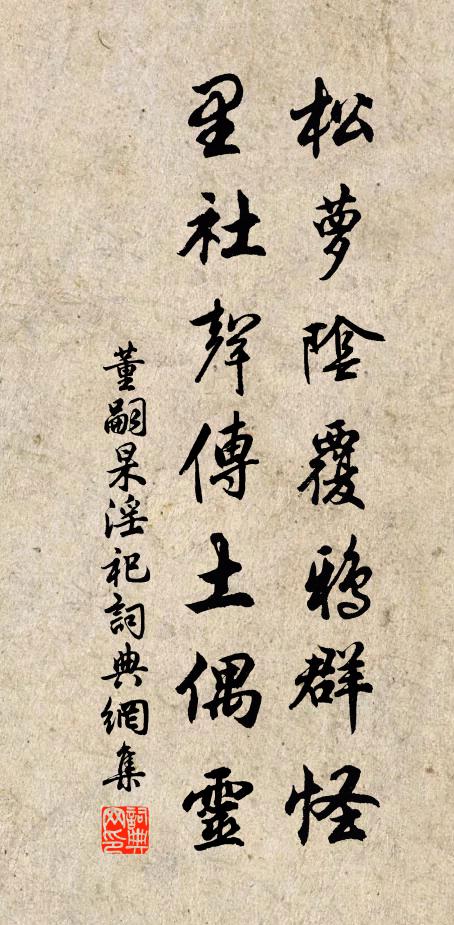 松萝陰覆鴉群怪
里社聲傳土偶靈
董嗣杲淫祀詞典網集
詞典网印